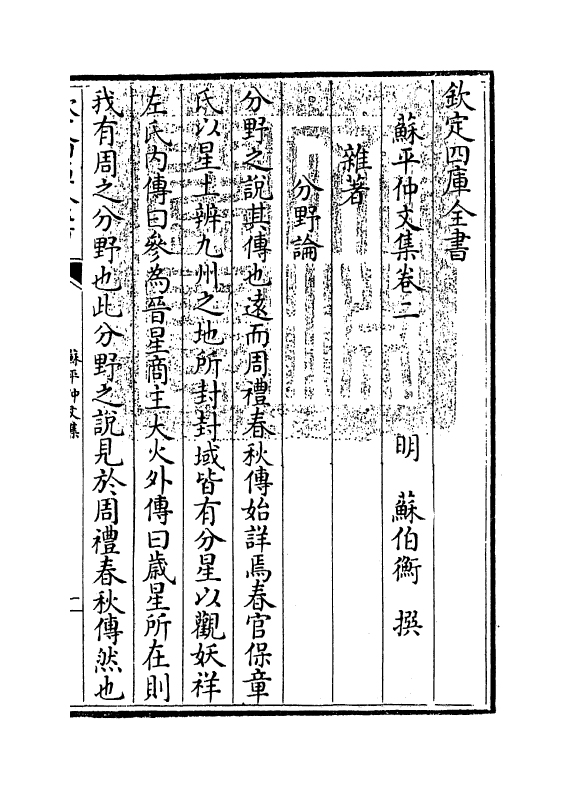 欽定四庫全書
蘇平仲文集卷二
明 蘇伯衡 撰
雜著
分野論
分野之說其傳也遠而周禮春秋傳始詳焉春官保章
氏以星土辨九州之地所封封域皆有分星以觀妖祥
左氏内傳曰參為晉星商主大火外傳曰歳星所在則
我有周之分野也此分野之說見於周禮春秋傳然也
蘇平仲文集